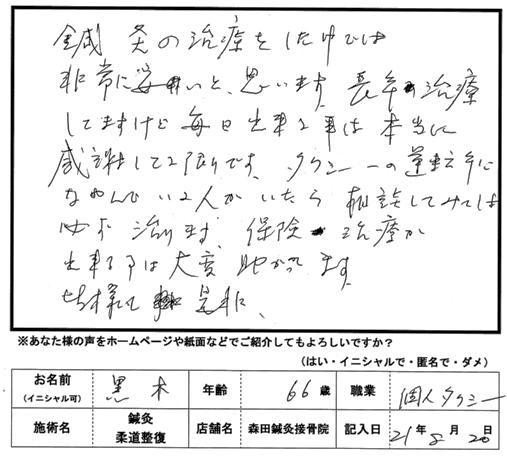 鍼灸の治療をしたゆびは
非常に安いと思います。長年治療
してますけど毎日出来る事は本当に
感謝して限りです。タクシーの運転手に
なやんでいる人がいたら相談してみては
必ず治ります。保険治療が
出来る事は大変助かってます
皆様も是非、
※あなた様の声をホームページや紙面などでご紹介してもよろしいですか？
（はい・イニシャルで・匿名で・ダメ）
お名前（イニシャル可） 黒木 年齢 66歳 職業 個人タクシー
施術名 鍼灸 柔道整復 店舗名 森田鍼灸接骨院 記入日 21年8月20日